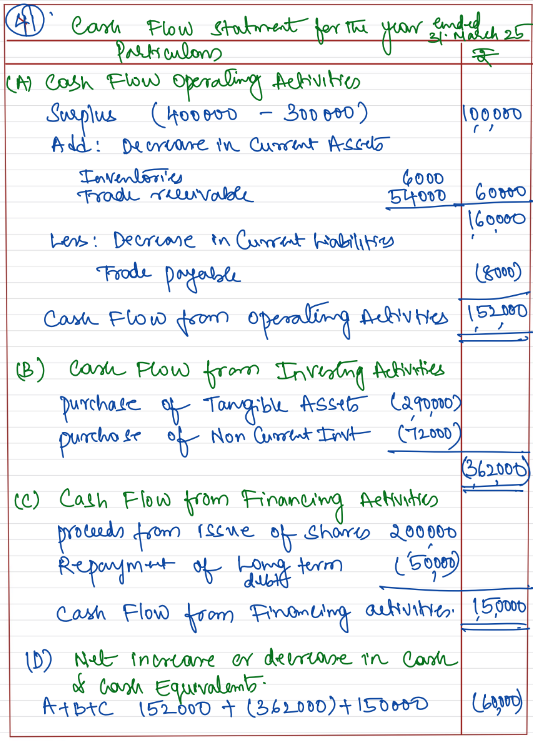 41. Cash Flow statment for the year ended 31. March 25
Particulars ₹
(A) Cash Flow Operating Activities
Surplus (400000 - 300000) 100000
Add: Decrease in Current Assets
Inventories 6000
Trade receivable 54000 60000
160000
Less: Decrease in Current Liabilities
Trade payable (8000)
Cash Flow from Operating Activities 152000
(B) Cash Flow from Investing Activities
purchase of Tangible Assets (290,000)
purchase of Non Current Invt (72000)
(362000)
(C) Cash Flow from Financing Activities
proceeds from issue of shares 200000
Repayment of Long term debts (50000)
Cash Flow from Financing activities. 150000
(D) Net increase or decrease in Cash
& Cash Equivalents.
A+B+C 152000 + (362000) + 150000 (60,000)